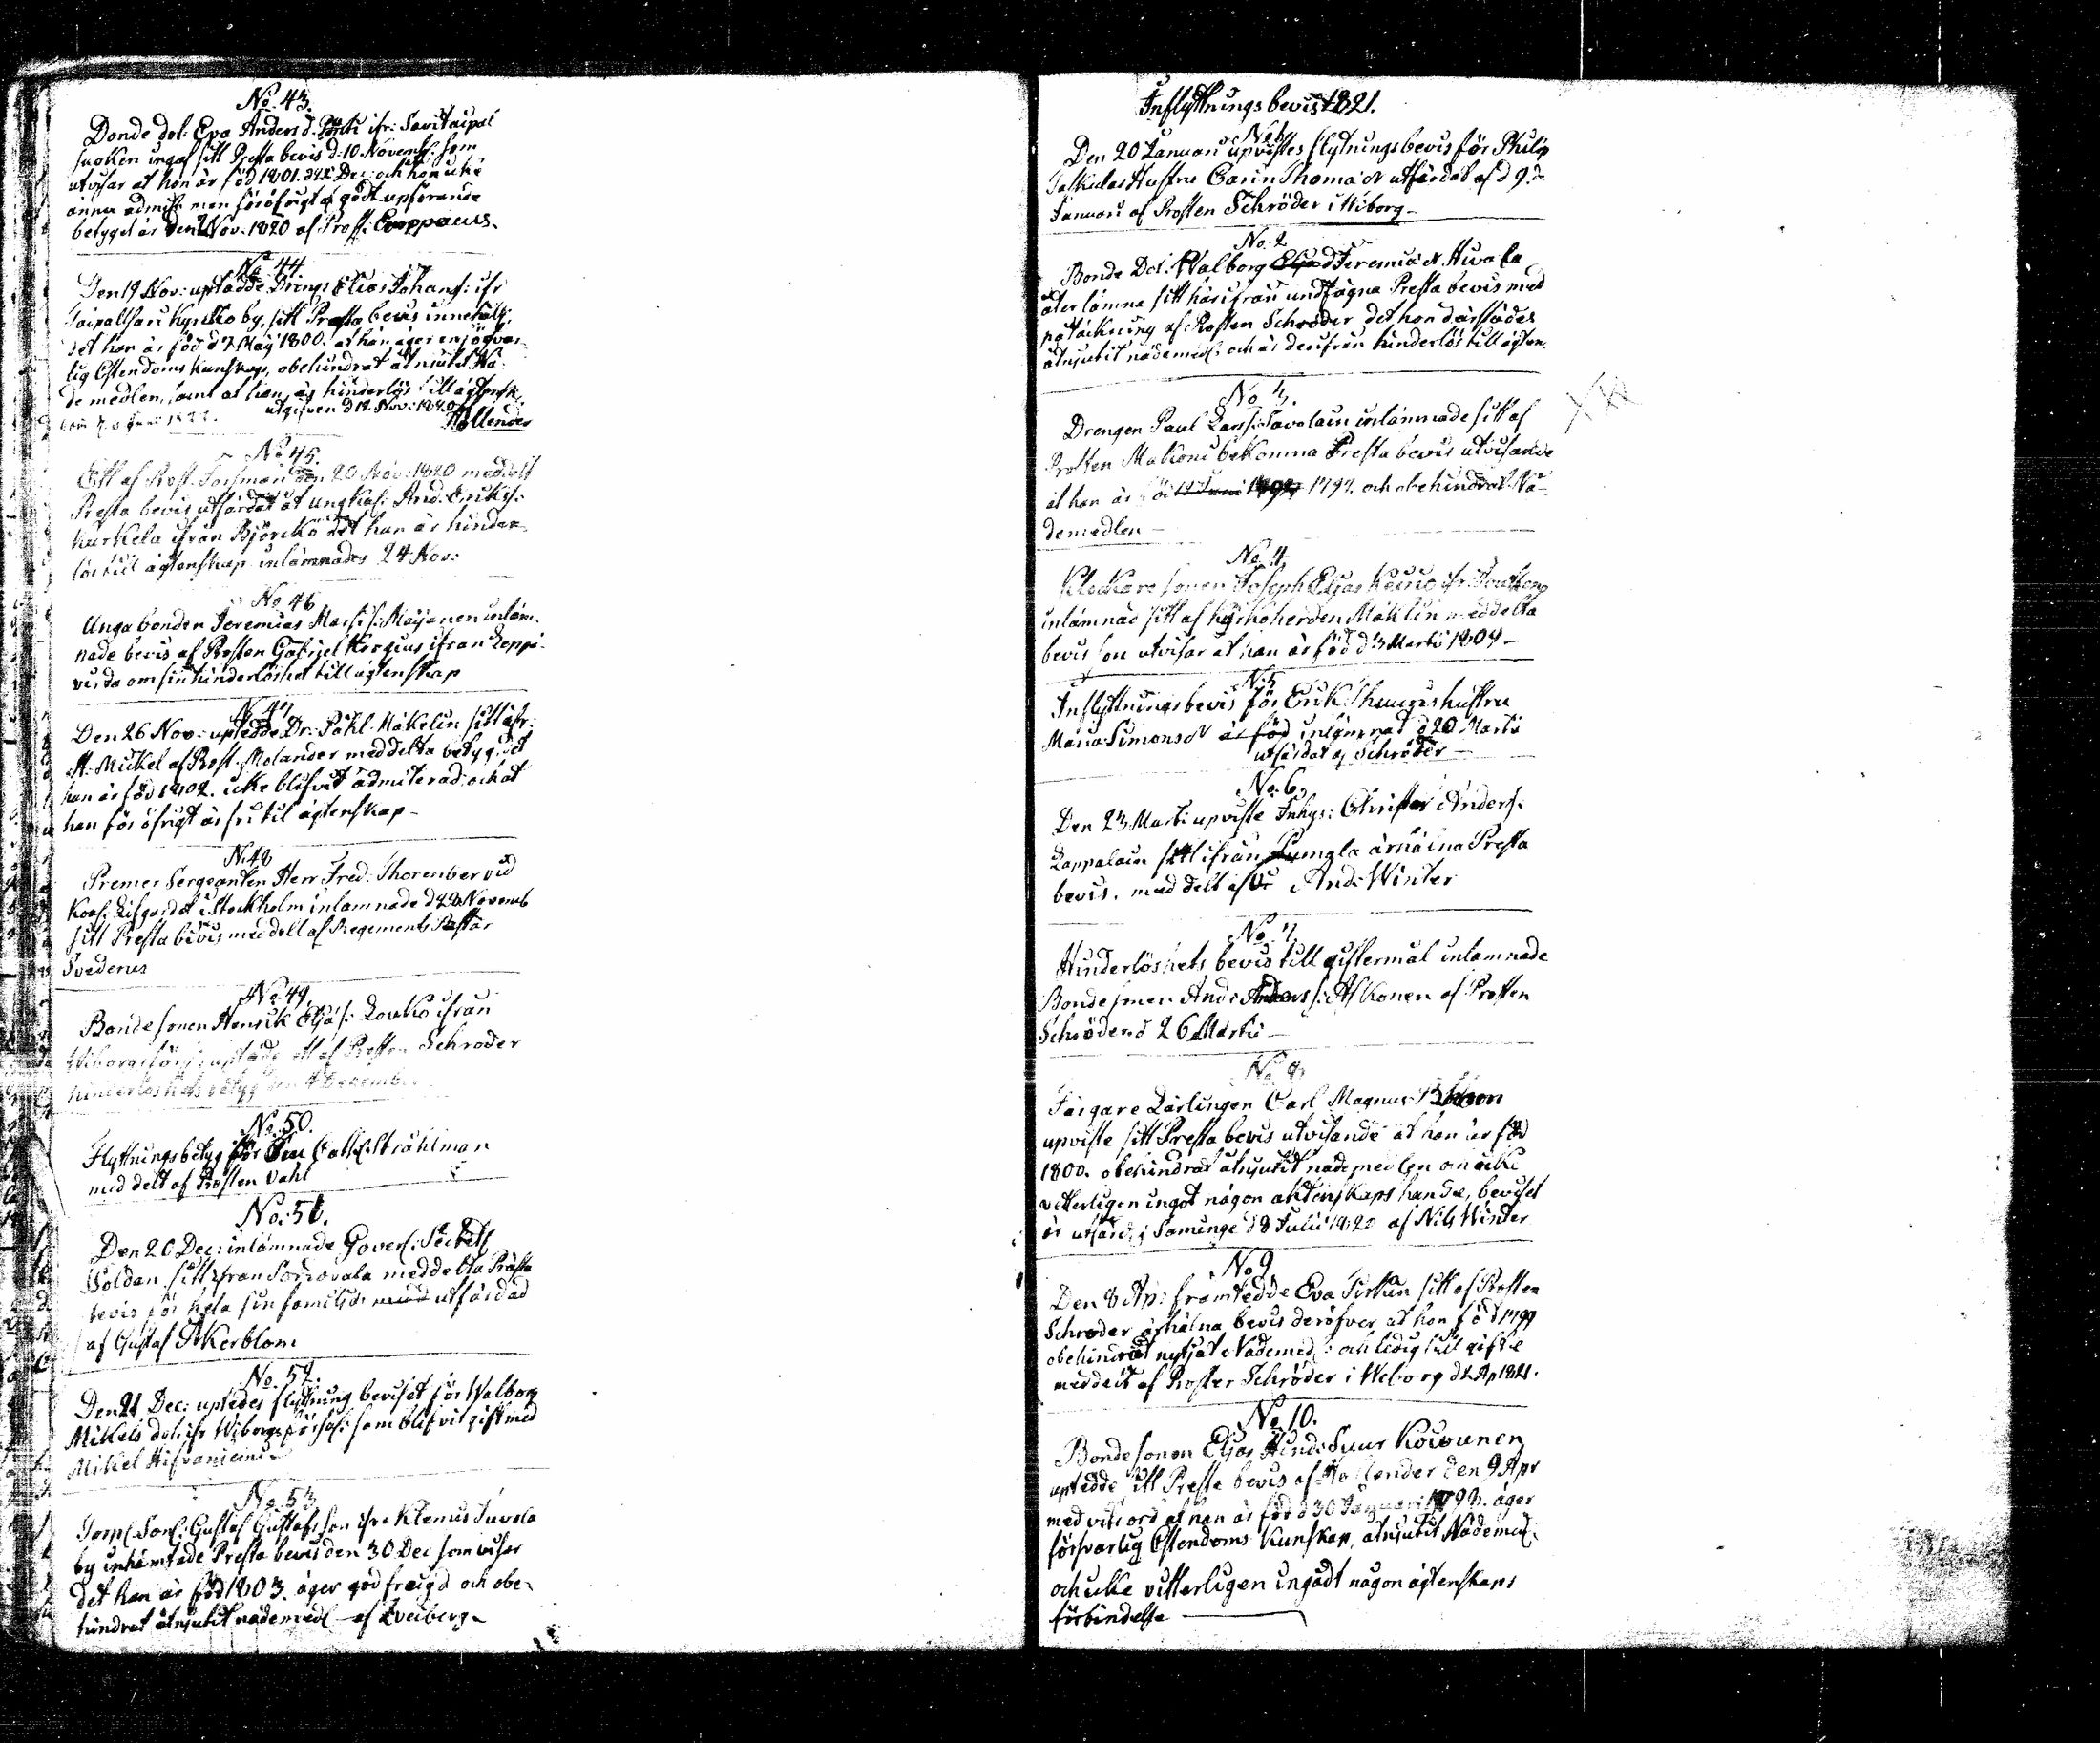 No. 43.
Bonde dot: Eva Anders d. Pöntï ifr: Savitaipal
sucken ingaf sitt Presta bevis d: 10. Novemb: som
utvisar at hon är föd 1801. Dec: och hon icke
ännu admit: men för öfrigt af godt upförande
betyget är den Nov. 1820 af Prost: Europaeus.
No. 44.
Den 19 Nov: uptedde Dreng: Elias Johans: ifr
Taipallsari Kyrkio by, sitt Presta bevis innehålg:
det han är föd d 7 May 1800. at han äger en förvar
lig Christendoms kunskap, obehindrat åtniutit Nå
de medlen, samt at han är hinderlös till ägtensk:
utgifven d 12 Nov: 1820
Hollender
No. 45.
Ett af Prost. Forsman den 20 Nov: 1820 meddelt
Presta bevis utfärdat åt ungkarl: And: Eriks:
Kurkela ifrån Björckö det han är hinder
lös till ägtenskap inlämnades 24 Nov:
No. 46
Unga bonden Jeremias Mars: s: Moijanen inläm
nade bevis af Prosten Gabriel Hergius ifrån Leppä
virda om sin hinderlöshet till ägtenskap
No. 47
Den 26 Nov: uptedde Dr: Påhl Mäkelin sitt ifr:
St. Mickel af Prost. Molander meddelta betyg, det
han är föd 1802. icke blifvit admiterad, och at
han för öfrigt är fri til ägtenskap
No. 48
Premier Sergeanten Herr Fred: Thorenber vid
Kongl: Lifgardet i Stockholm inlämnade d 28 Novemb
sitt Presta bevis meddelt af Regements Pastor
Svedenus
No. 49.
Bonde sonen Henrik Eljas: Louko ifrån
Wiborgs förs: uptedde ett af Prosten Schroder
hinderlöshets betyg den 4 December
No. 50.
Flyttnings betyg för Cath: Stråhlman
med delt af Prosten Vahl
No. 51.
Den 20 Dec: inlämnade Govers: Sekrets
Soldan sitt ifrån Sordovala meddelta Prästa
bevis för hela sin familje utfärdad
af Gustaf Åkerblom
No. 52.
Den 21 Dec: uptedes flyttning beviset för Walborg
Mikels dot: ifr Wiborgs förs: som blifvit gift med
Mikel Hifvaniemi
No. 53
Torp: Son: Gustaf Gustafsson ifr: Klemis Tuvola
by inhämtade Presta bevis den 30 Dec som visar
det han är född 1803. äger god frejgd och obe
hindrat åtniutit nådemedl af Zveiberg
Inflyttnings bevis 1821.
No 1
Den 20 Januari upvistes flytnings bevis för Philip
Jaskulas Hustru Carin Thoma dr utfärdat af d 9 de
Januari af Prosten Schröder i Wiborg
No. 2
Bonde Dot: Walborg Jeremia dr. Huvola
återlämna sitt härifrån undfågna Presta bevis med
påtäckning af Prosten Schröder det hon därstädes
åtniutit nådemedl: och är derifrån hinderlös till ägten
No. 3.
Drengen Paul Lars: Savolain inlämnade sitt af
Prosten Malioni bekomna Presta bevis utvisande
at han är föd 1797. och obehindrat Nå
demedlen
No. 4
Klockare sonen Joseph Eljas ifr:
inlämnad sitt af Kyrkoherden Mäklin meddelta
bevis son utvisar at han är född d 3 Marti 1804
N. 5
Inflyttnings bevis för Erik hustru
Maria Simons dr är föd inlämnad d 20 Martii
utfärdat af Schröder
No. 6.
Den 23 Mart: upviste Inhys: Christer Anders:
Lappalain sitt ifrån Jumala ärhålna Presta
bevis. med delt af And: Winter
No. 7.
Hinderlöshets bevis till giftermål inlamnade
Bonde sonen And: Anders s: Askonen af Prosten
Schröder d 26 Martii
No. 8.
Färgare Lärlingen Carl Magnus
upviste sitt Presta bevis utvisande at han är föd
1800. obehindrat åtniutit nådemedlen och icke
vetterligen ingåt någon aktenskaps handel, beviset
är utfärd: i Säminge d 8 Julii 1820 af Nils Winter
No 9
Den 8 Ap: framtedde Eva Sirkiän sitt af Prosten
Schroder ärhålna bevis deröfver at hon född 1799
obehindrat nytjat Nådemed: och ledig till gifte
meddelt af Proster Schröder i Weborg d 2 Ap 1821.
No. 10.
Bonde sonen Eljas Hind: Suur Koivunen
uptedde sitt Presta bevis af Hollender den 9 Apr
med vitsord at han är född d 30 Januari 1793. äger
försvarlig Christendoms Kunskap, åtniutit Nådemed:
och icke vitterligen ingådt någon ägtenskaps
förbindelse